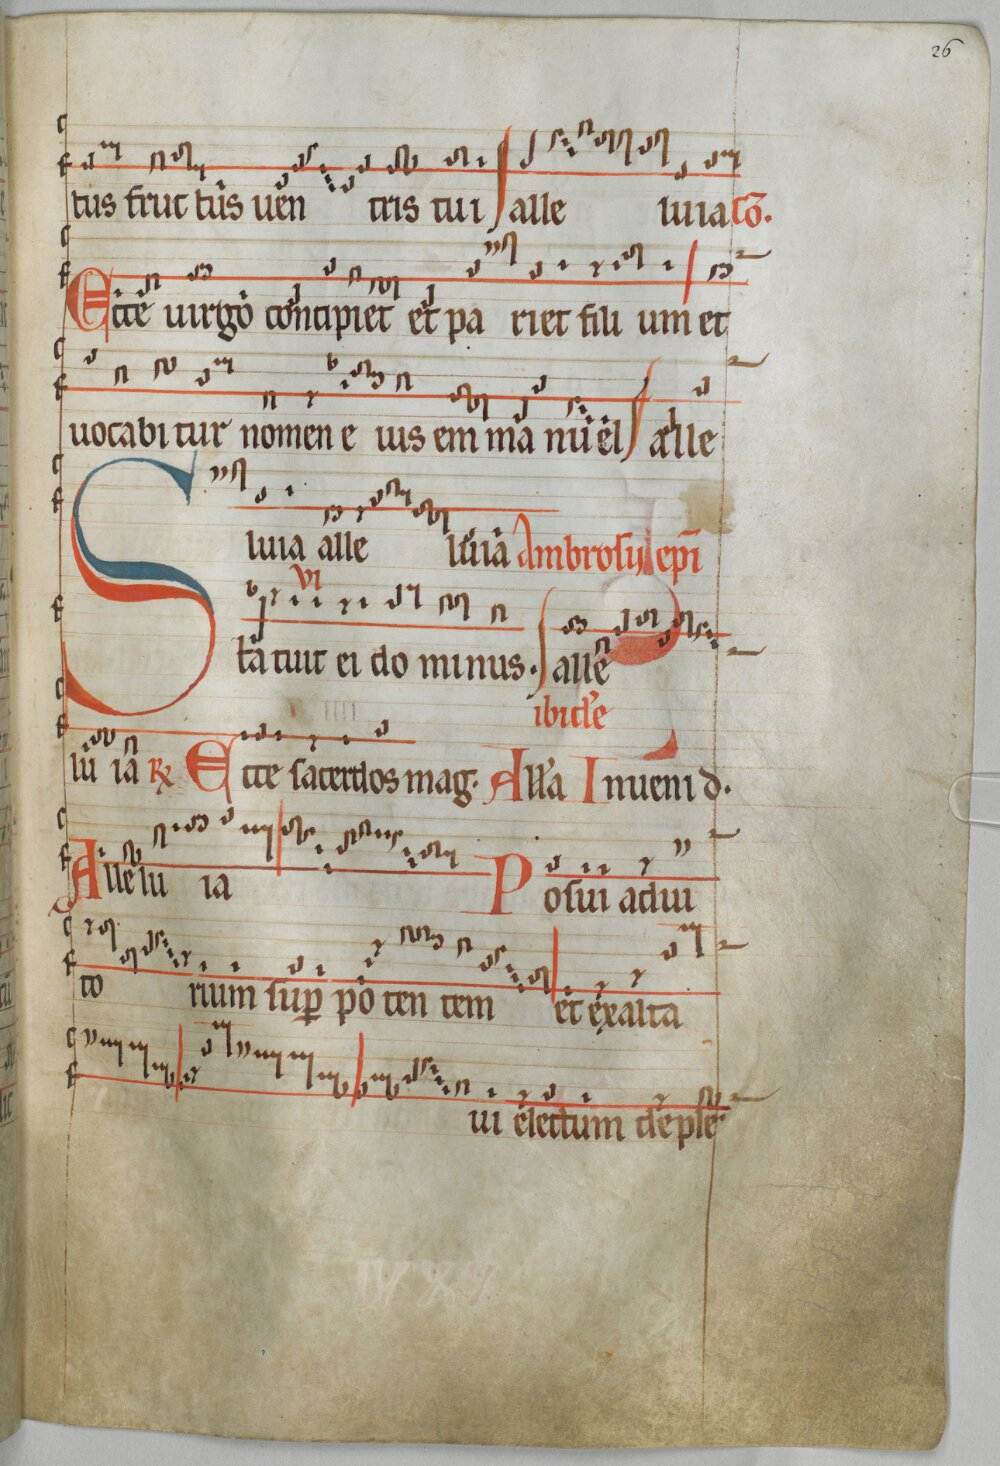 26
tus fruc tus uen tris tu i alle luia Cō.
Ecce uirgo concipiet et pa riet fili um et
uocabi tur nomen e ius em ma nu el alle
luia alle luia Ambrosij epī
VI
Sta tuit ei do minus. alle
ibidē
lu ia R Ecce sacerdos mag. All'a Inueni d.
Alle lu ia Posui adiu
to rium sup po ten tem et exalta
ui electum de ple